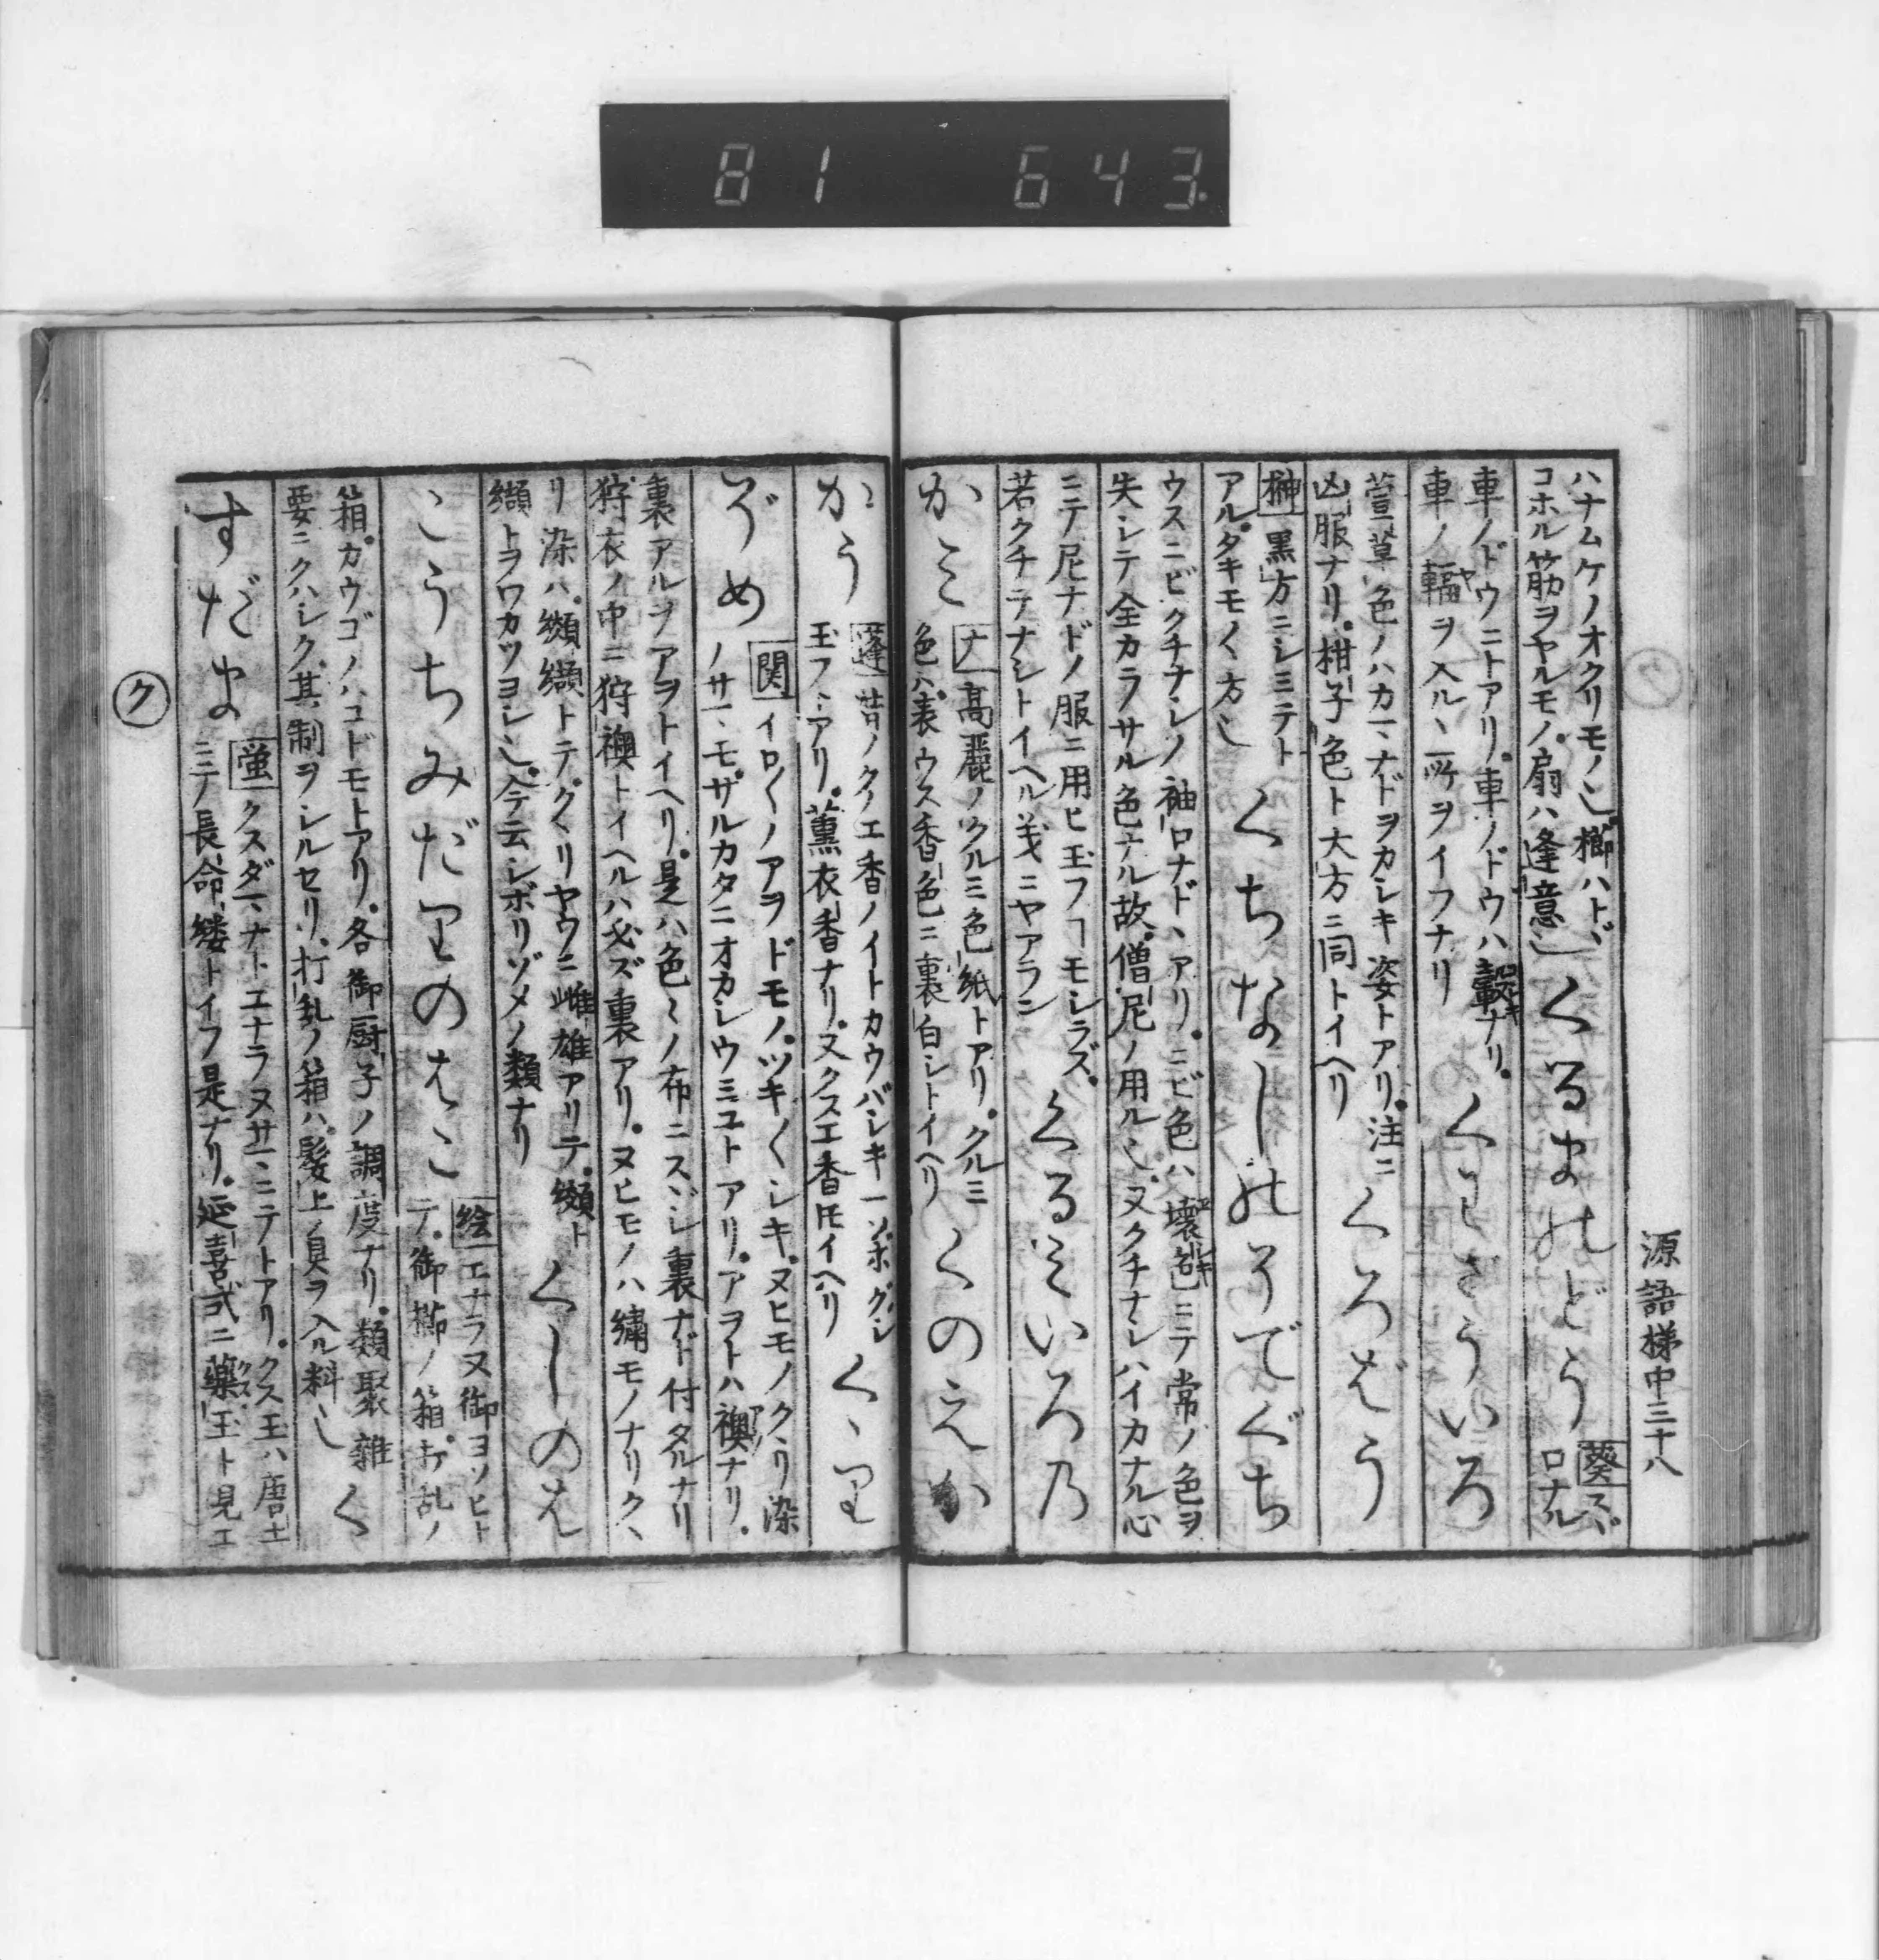 81 643
源語梯中三十八
ハナムケノオクリモノ也櫛ハトヾ
コホル筋ヲヤルモノ扇ハ逢意也
くるまのどう
葵
スヾ
ロナル
車ノドウニトアリ車ノドウハ轂ナリ
車ノ輻ヲ入ルヽ所ヲイフナリ
くわざういろ
萱草色ノハカマナドヲカシキ姿トアリ注ニ
凶服ナリ柑子色ト大方ニ同トイヘリ
くろばう
榊
黒方ニシミテト
アルタキモノヽ方也
くちなしのそでぐち
ウスニビクチナシノ袖口ナドヽアリニビ色ハ壊色ニテ常ノ色ヲ
失シテ全カラサル色ナル故僧尼ノ用ル也又クチナシハイカナル心
ニテ尼ナドノ服ニ用ヒ玉フヿモシラズ
若クチテナシトイヘル義ニヤアラン
くるみいろの
かみ
ナ
高麗ノクルミ色紙トアリクルミ
色ハ表ウス香色ニ裏白シトイヘリ
くのえか
かう
蓬
昔ノクノエ香ノイトカウバシキ一ツボグシ
玉フヽアリ薫衣香ナリ又クスエ香トモイヘリ
くゝり
ぞめ
関
イロ〱ノアヲドモノツキ〱シキヌヒモノクヽリ染
ノサマモサルカタニオカシウミユトアリアヲトハ襖ナリ
裏アルヲアヲトイヘリ是ハ色〻ノ布ニスヾシ裏ナド付タルナリ
狩衣ノ中ニ狩襖トイヘルハ必ズ裏アリヌヒモノハ繍モノナリクヽ
リ染ハ纐纈トテクヽリヤウニ雌雄アリテ纐ト
纈トヲワカツヨシ也今云シボリゾメノ類ナリ
くしのは
こうちみだりのはこ
絵
エナラヌ御ヨソヒト
テ御櫛ノ箱打乱ノ
箱カウゴノハコドモトアリ各御厨子ノ調度ナリ類聚雑
要ニクハシク其制ヲシルセリ打乱ノ箱ハ髪上ノ具ヲ入ル料也
く
すだま
蛍
クスダマナトエナラヌサマニテトアリクス玉ハ唐土
ニテ長命縷トイフ是ナリ延喜式ニ薬玉ト見エ
ク